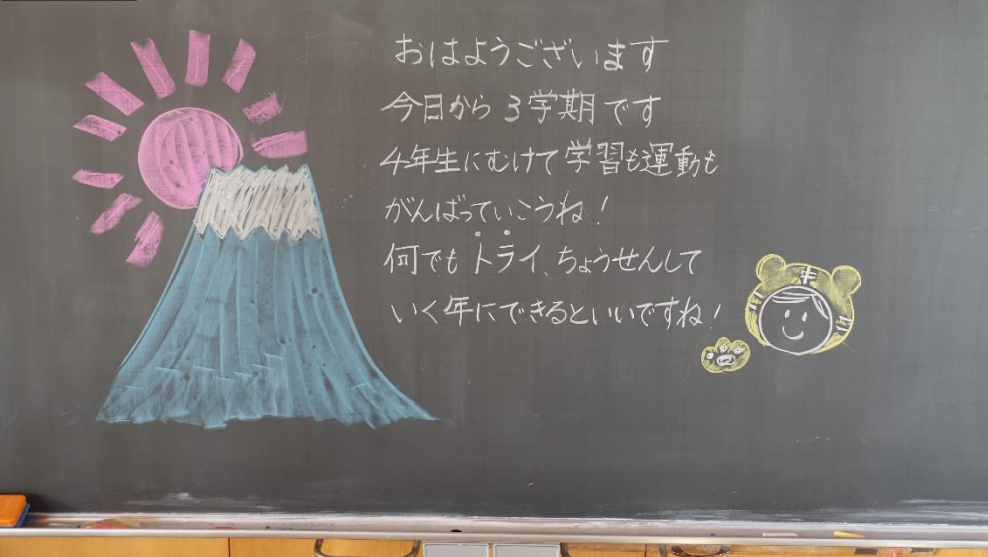 おはようございます
今日から3学期です
4年生にむけて学習も運動も
がんばっていこうね!
何でもトライ、ちょうせんして
いく年にできるといいですね!